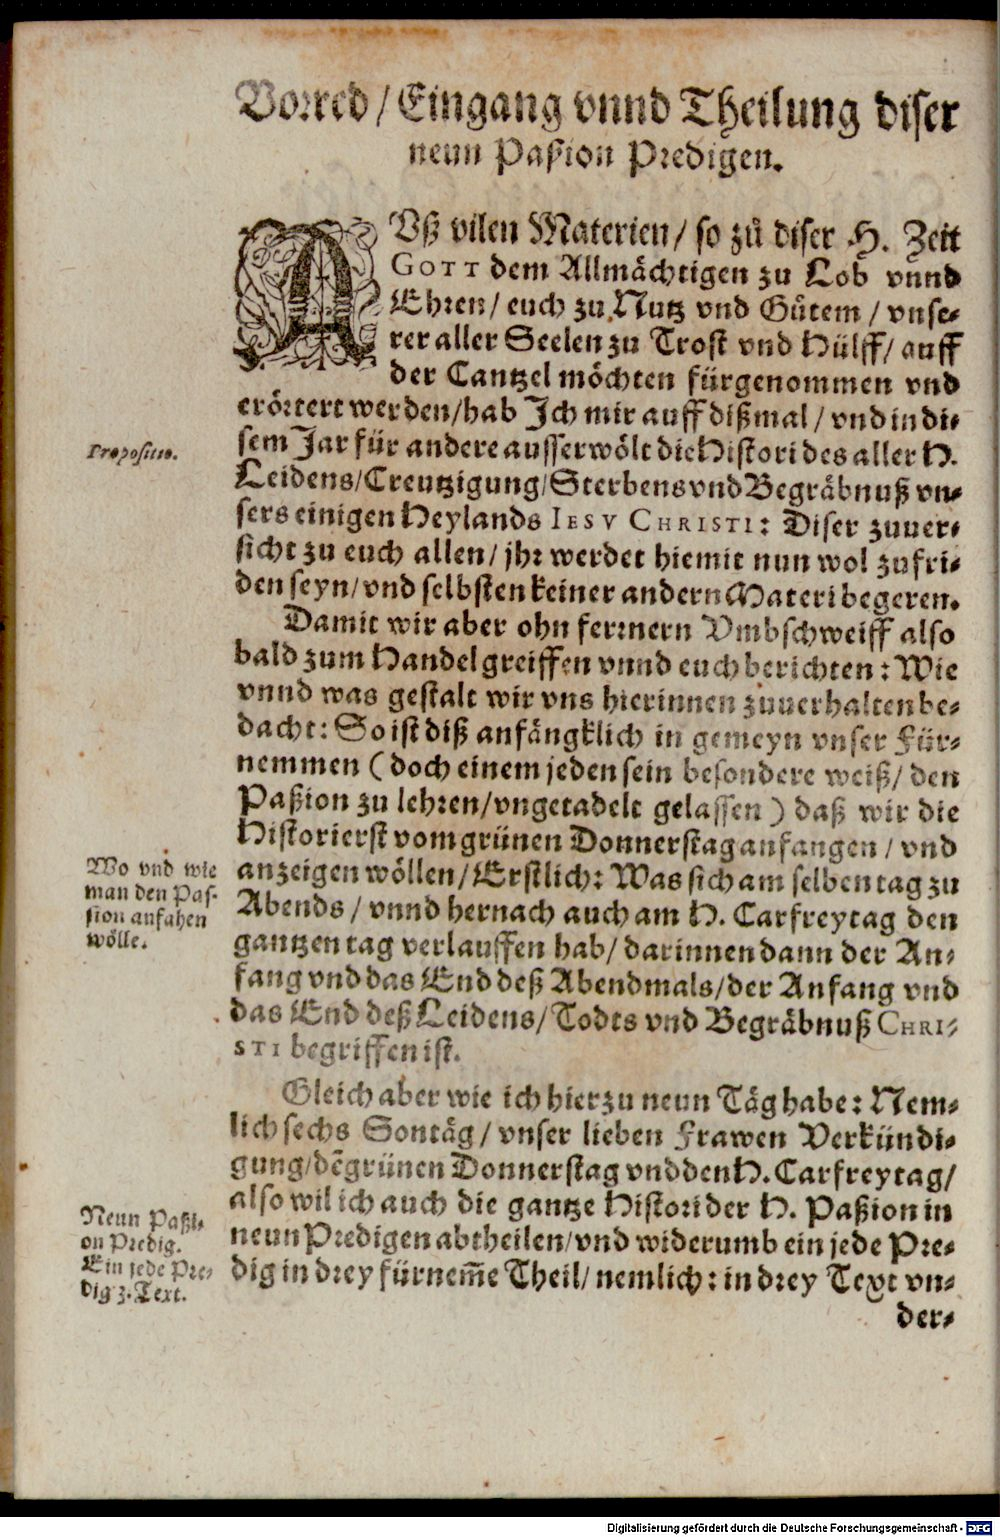 Vorred / Eingang vnnd Theilung diser
neun Paßion Predigen.
AVß vilen Materien / so zů diser H. Zeit
GOTT dem Allmächtigen zu Lob vnnd
Ehren / euch zu Nutz vnd Gůtem / vnse-
rer aller Seelen zu Trost vnd Hülff / auff
der Cantzel möchten fürgenommen vnd
erörtert werden / hab Ich mir auff dißmal / vnd in di-
sem Jar für andere ausserwölt die Histori des aller H.
Propositio.
Leidens / Creutzigung / Sterbens vnd Begräbnuß vn-
sers einigen Heylands IESV CHRISTI: Diser zuuer-
sicht zu euch allen / jhr werdet hiemit nun wol zufri-
den seyn / vnd selbsten keiner andern Materi begeren.
Damit wir aber ohn ferrnern Vmbschweiff also
bald zum Handel greiffen vnnd euch berichten: Wie
vnnd was gestalt wir vns hierinnen zuuerhalten be-
dacht: So ist diß anfängklich in gemeyn vnser Für-
nemmen (doch einem jeden sein besondere weiß / den
Paßion zu lehren / vngetadelt gelassen) daß wir die
Histori erst vom grünen Donnerstag anfangen / vnd
anzeigen wöllen / Erstlich: Was sich am selben tag zu
Abends / vnnd hernach auch am H. Carfreytag den
gantzen tag verlauffen hab / darinnen dann der An-
fang vnd das End deß Abendmals / der Anfang vnd
das End deß Leidens / Todts vnd Begräbnuß CHRI-
STI begriffen ist.
Wo vnd wie
man den Pas-
sion anfahen
wölle.
Gleich aber wie ich hierzu neun Täg habe: Nem-
lich sechs Sontäg / vnser lieben Frawen Verkündi-
gung / dē grünen Donnerstag vnd den H. Carfreytag /
also wil ich auch die gantze Histori der H. Paßion in
neun Predigen abtheilen / vnd widerumb ein jede Pre-
dig in drey fürnem̃e Theil / nemlich: in drey Text vn-
der-
Neun Paßi-
on Predig.
Ein jede Pre-
dig 3. Text.
Digitalisierung gefördert durch die Deutsche Forschungsgemeinschaft - DFG